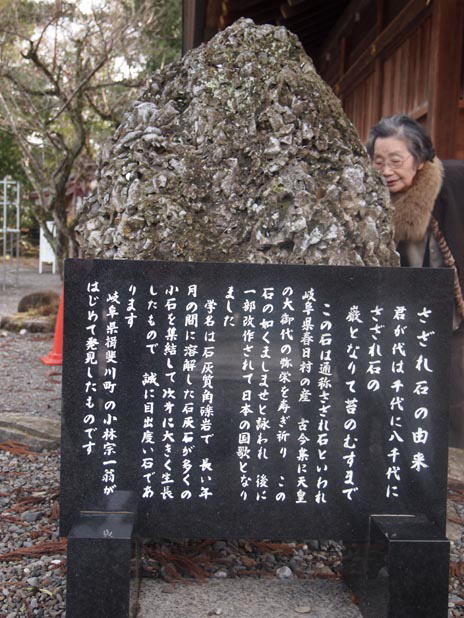 さざれ石の由来
君が代は千代に八千代に
さざれ石の
巌となりて苔のむすまで
この石は通称さざれ石といわれ
岐阜県春日村の産 古今集に天皇
の大御代の弥栄を寿ぎ祈り この
石の如くましませと詠われ 後に
一部改作されて日本の国歌となり
ました
学名は石灰質角礫岩で 長い年
月の間に溶解した石灰石が多くの
小石を集結して次才に大きく生長
したもので 誠に目出度い石であ
ります
岐阜県揖斐川町の小林宗一翁が
はじめて発見したものです